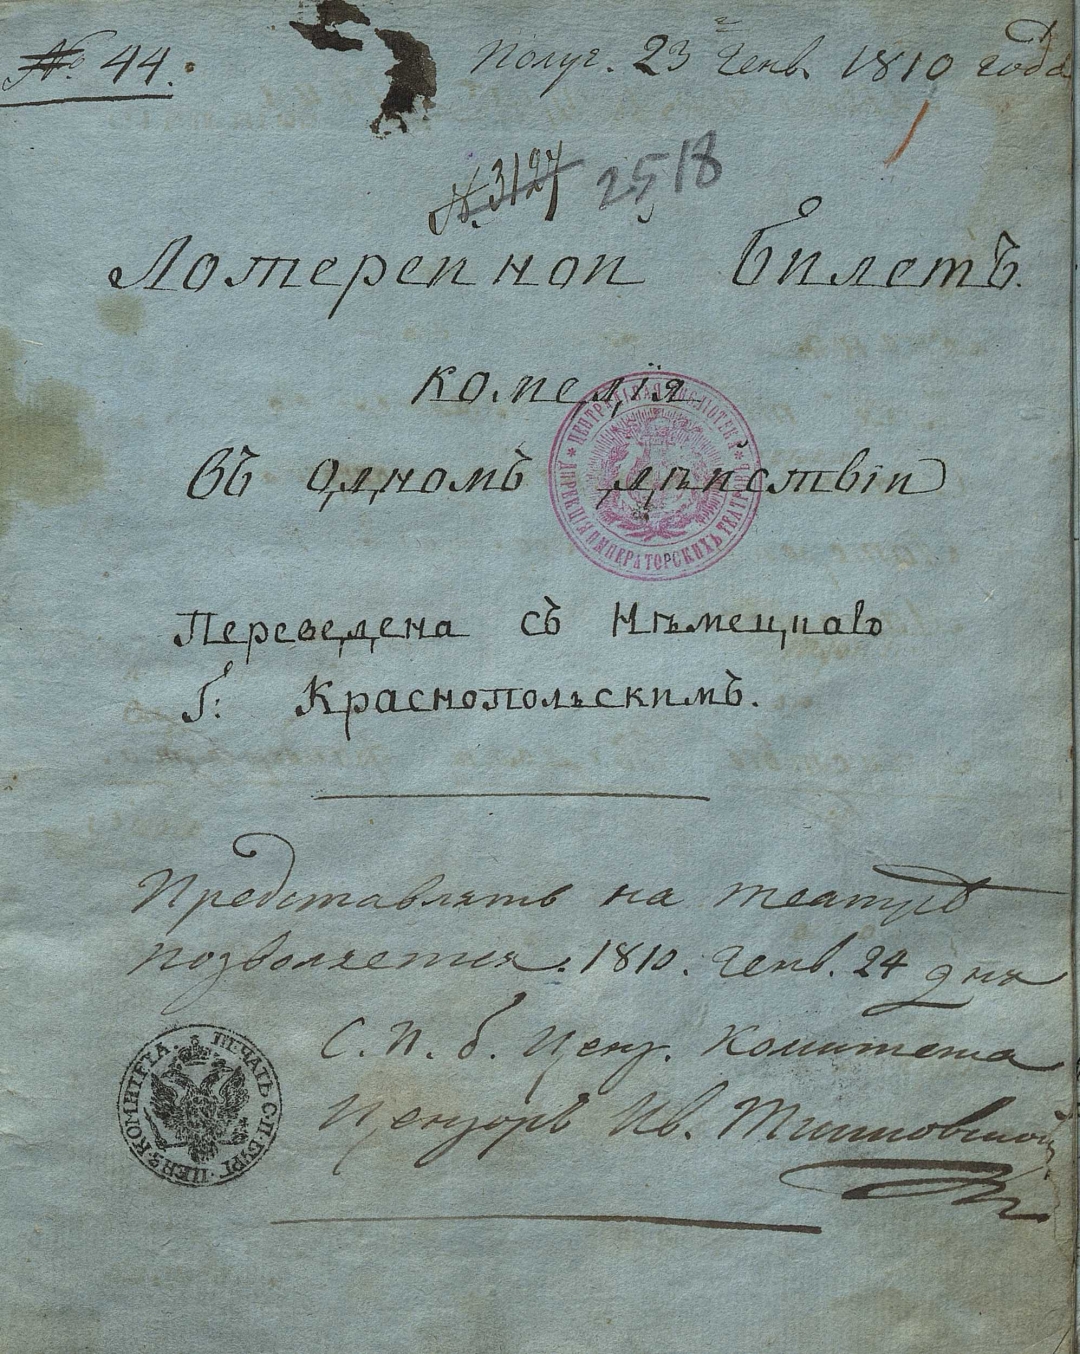 № 44.
Полуг. 23 Генв. 1810 года
№ 3127 2518
Лотерейной билетъ.
комедія
въ одномъ дѣйствіи
ЦЕНТРАЛЬНАЯ БИБЛІОТЕКА * ДИРЕКЦІЯ ИМПЕРАТОРСКИХЪ ТЕАТРОВЪ *
Переведена съ Нѣмецкаго
Г: Краснопольскимъ.
Представлять на театрѣ
позволяется. 1810. Генв. 24 дня
С. П. б. Ценз. Комитета
Цензоръ Ив. Тимковской
ПЕЧАТЬ С. П. БУРГ. ЦЕНЗ. КОМИТЕТА.